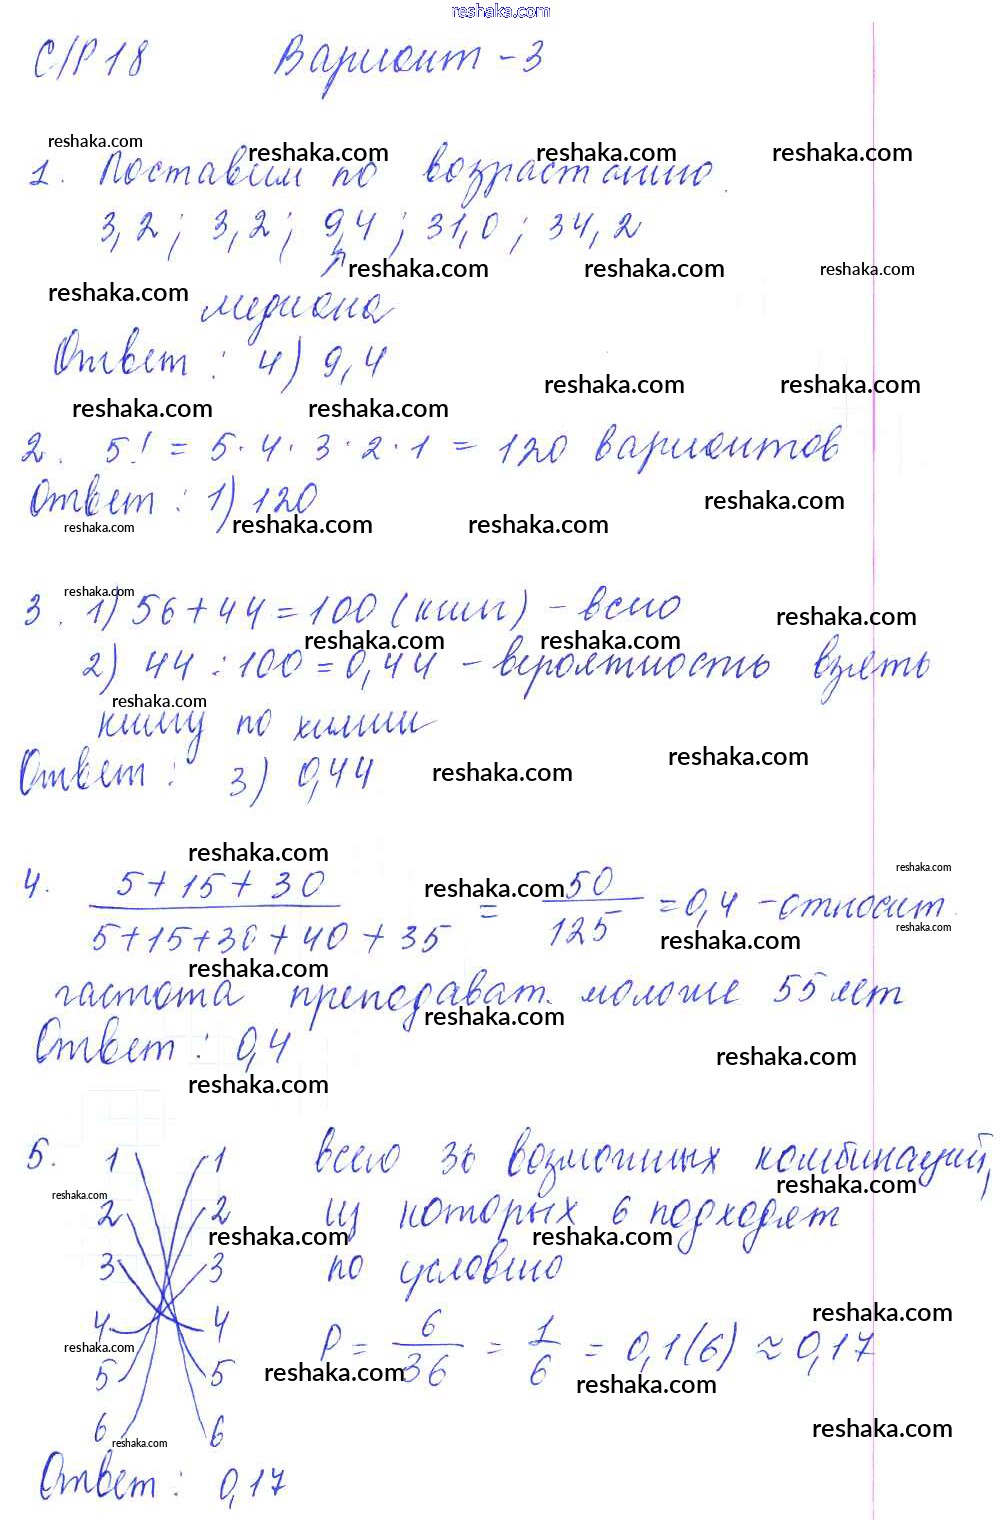 reshaka.com
С/Р 18 Вариант - 3
reshaka.com
reshaka.com reshaka.com reshaka.com
1. Поставим по возрастанию.
3,2 ; 3,2 ; 9,4 ; 31,0 ; 34,2
reshaka.com reshaka.com reshaka.com
reshaka.com
медиана
Ответ : 4) 9,4
reshaka.com reshaka.com
reshaka.com reshaka.com
2. 5! = 5 · 4 · 3 · 2 · 1 = 120 вариантов
Ответ : 1) 120
reshaka.com
reshaka.com reshaka.com reshaka.com
reshaka.com
3. 1) 56 + 44 = 100 (книг) - всего
reshaka.com
reshaka.com reshaka.com
2) 44 : 100 = 0,44 - вероятность взять
reshaka.com
книгу по химии
reshaka.com
Ответ : 3) 0,44
reshaka.com
reshaka.com
reshaka.com
4. 5 + 15 + 30 / 5 + 15 + 30 + 40 + 35 = 50 / 125 = 0,4 - относит.
reshaka.com
reshaka.com
reshaka.com
reshaka.com
частота преподават. моложе 55 лет
reshaka.com
Ответ : 0,4
reshaka.com
reshaka.com
5. 1 1 всего 36 возможных комбинаций,
reshaka.com
reshaka.com
2 2 из которых 6 подходят
reshaka.com reshaka.com
3 3 по условию
reshaka.com
4 4 P = 6 / 36 = 1 / 6 = 0,1(6) ≈ 0,17
reshaka.com
5 5
reshaka.com
reshaka.com
6 6
reshaka.com
reshaka.com
Ответ : 0,17